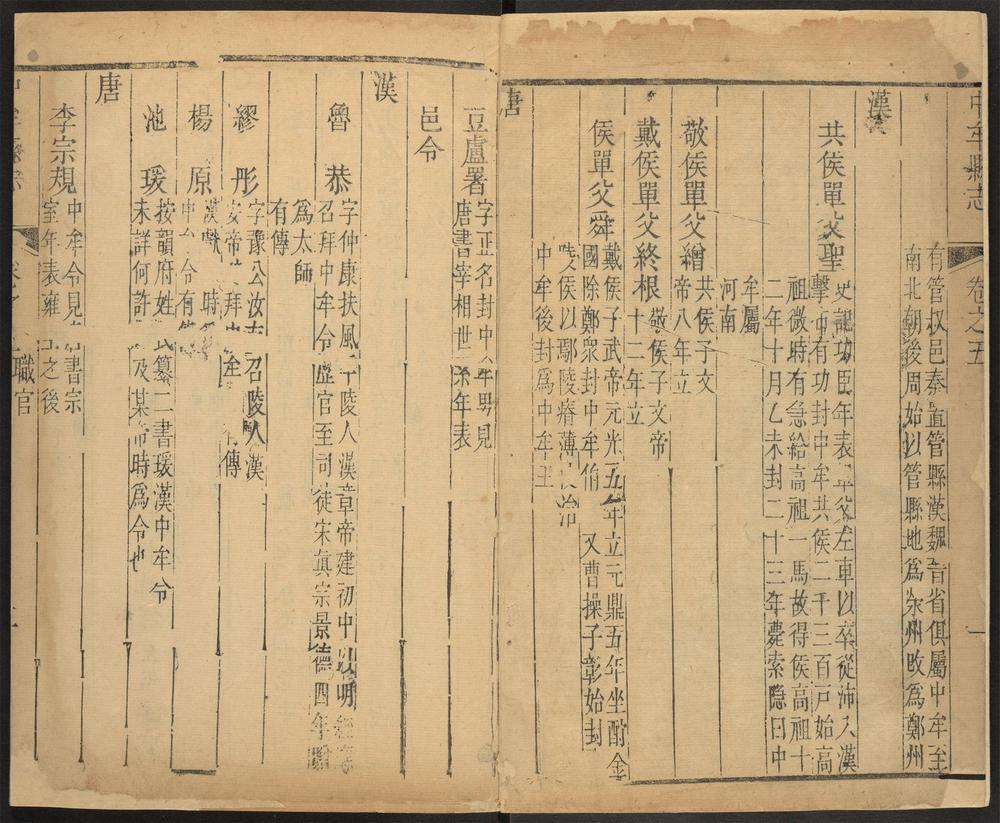 中牟縣志
卷之五
一
有管叔邑秦置管縣漢魏晉省俱屬中牟至
南北朝後周始以管縣地爲滎州改爲鄭州
漢
共侯單父聖
史記功臣年表單父左車以卒從沛入漢
擊 有功封中牟共侯二千三百戸始高
祖微時有急給高祖一馬故得侯高祖十
二年十月乙未封二十三年薨索隱曰中
牟屬
河南
敬侯單父繒
共侯子文
帝八年立
戴侯單父終根
敬侯子文帝
十二年立
侯單父舜
戴侯子武帝元光五年立元鼎五年坐酎金
國除鄭衆封中牟伯 又曹操子彰始封
陵侯以鄢陵瘠薄 治
中牟後封爲中牟王
唐
豆盧署
字正名封中牟男見
唐書宰相世系年表
邑令
漢
魯恭
字仲康扶風平陵人漢章帝建初中以明經
召拜中牟令歷官至司徒宋真宗景德四年
爲太師
有傳
繆彤
字豫公汝 召陵人漢
安帝 拜 牟 有傳
楊原
漢 時
中 令有
池瑗
按韻府姓氏纂二書瑗漢中牟令
未詳何許 及某帝時爲令也
唐
李宗規
中牟令見 書宗
室年表雍 之後
職官